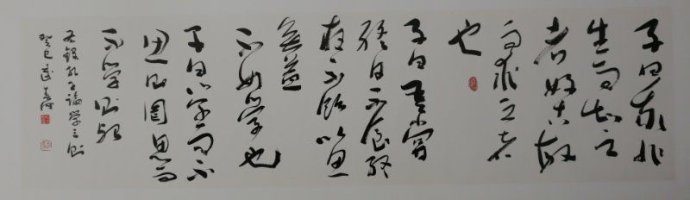 子曰我非
生而知之
者好古敏
以求之者
也
子曰吾嘗
終日不食終
夜不寢以思
無益
不如學也
子曰學而不
思則罔思而
不學則殆
右錄孔子論學三則
癸巳